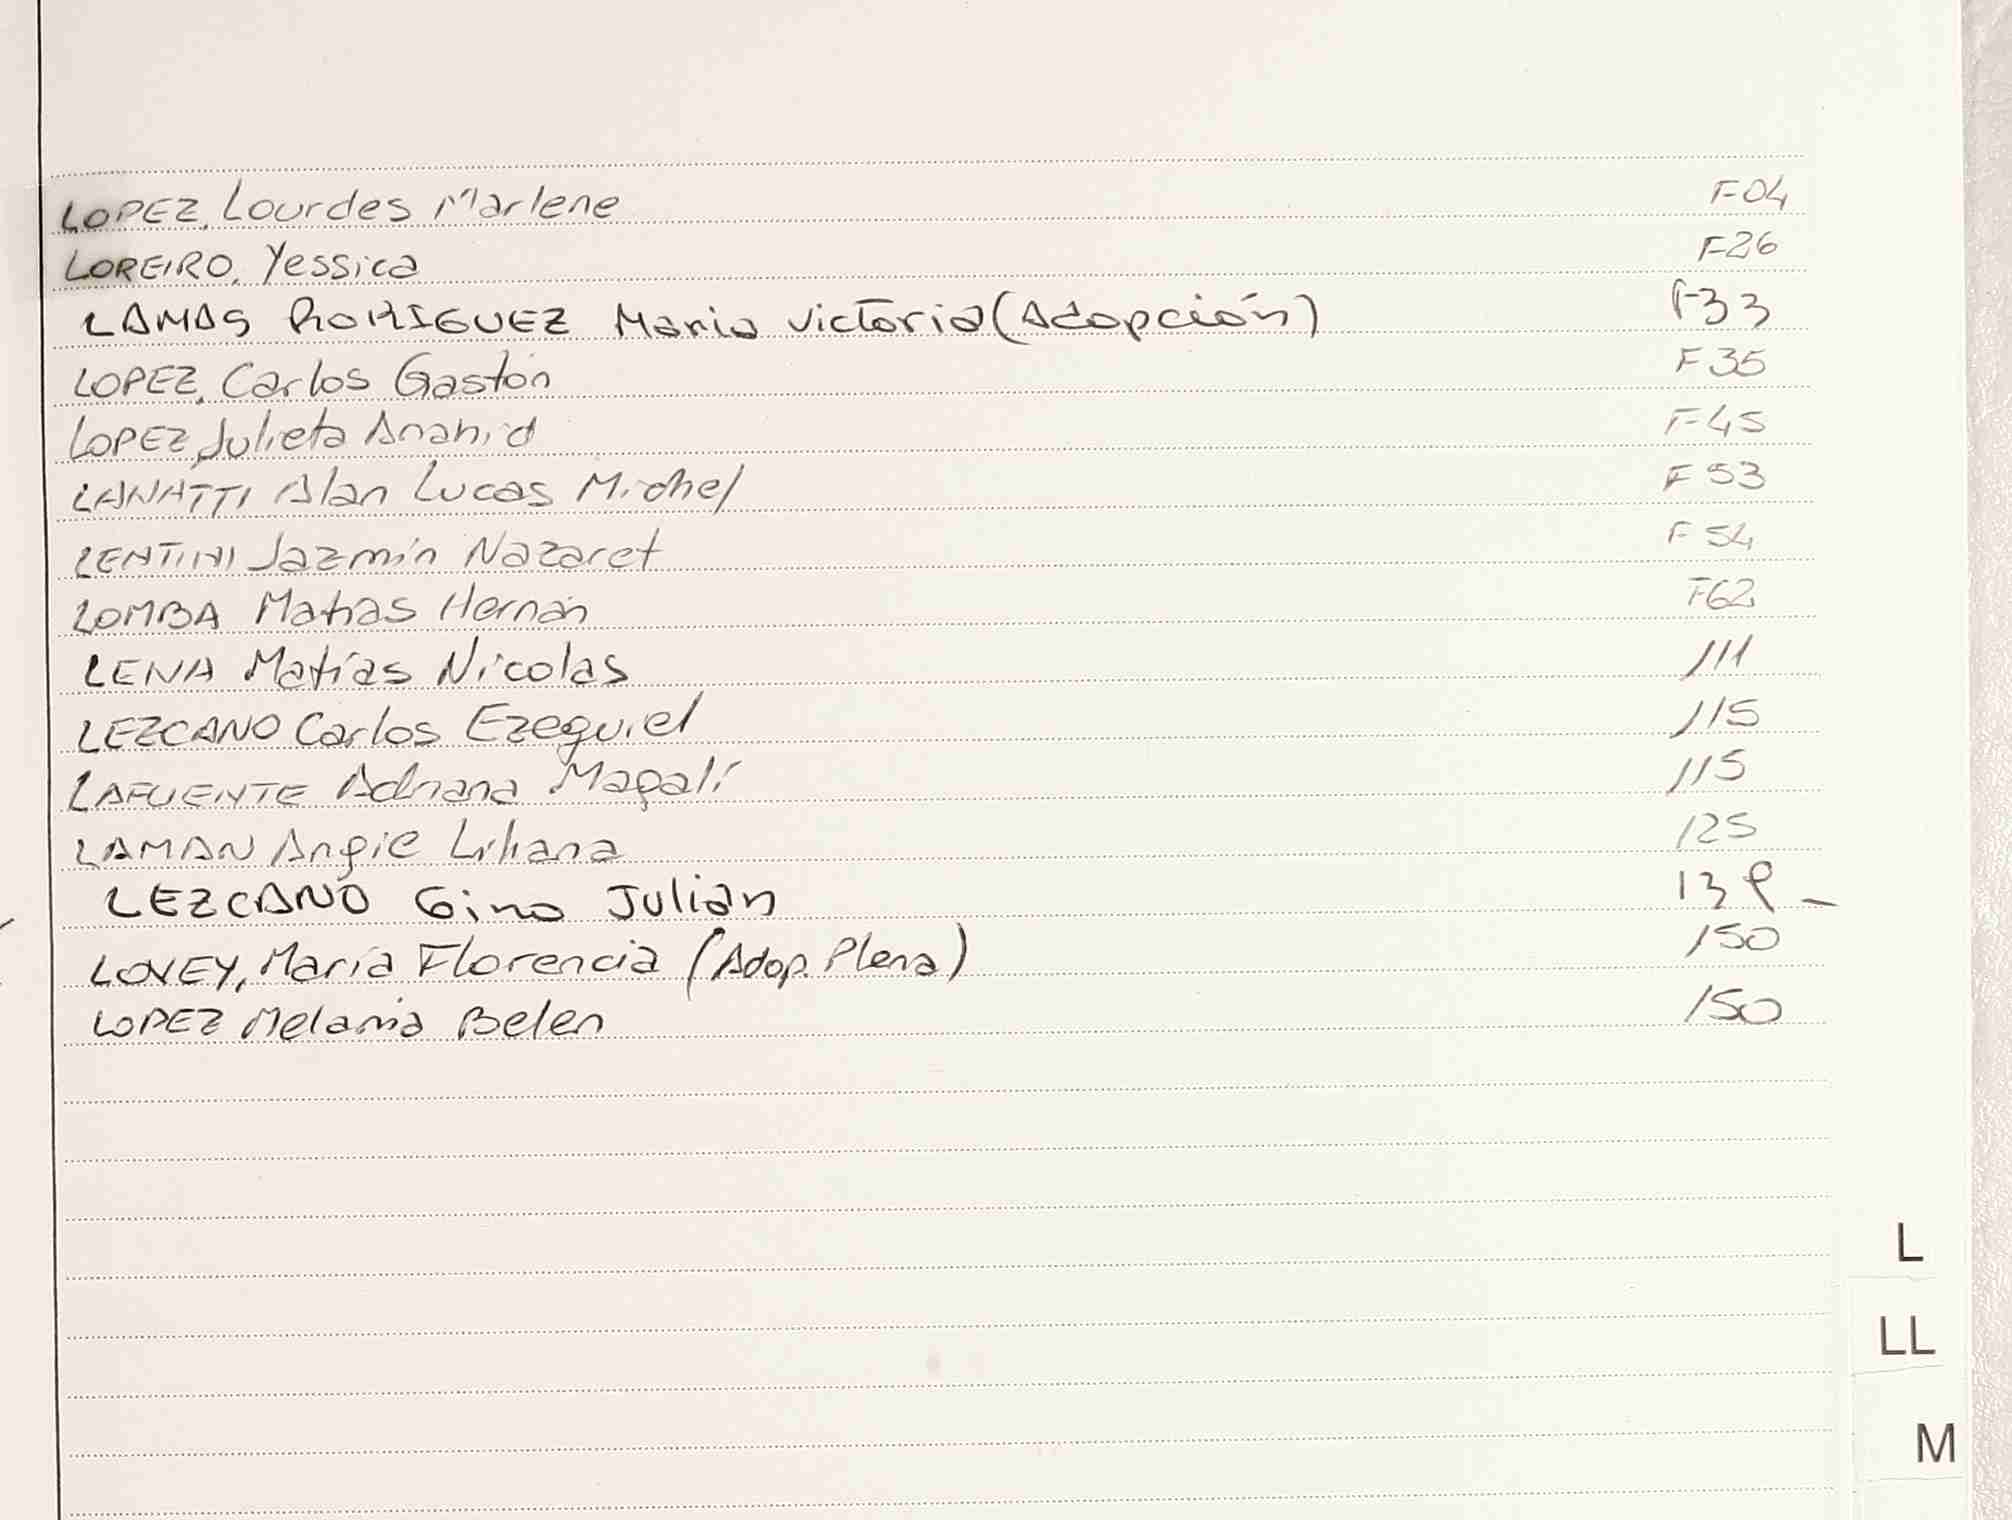 LOPEZ, Lourdes Marlene F-04
LOREIRO, Yessica F-26
LAMAS RORIGUEZ Maria Victoria (Adopción) F-33
LOPEZ, Carlos Gastón F 35
LOPEZ, Julieta Anahid F-45
LANATTI Alan Lucas Michel F 53
LENTINI Jazmín Nazaret F 54
LOMBA Matias Hernán F62
LENA Matías Nicolas 111
LEZCANO Carlos Ezequiel 115
LAFUENTE Adriana Magalí 115
LAMAN Angie Liliana 125
LEZCANO Gino Julián 139
LOVEY, María Florencia (Adop. Plena) 150
LOPEZ Melania Belen 150
L
LL
M